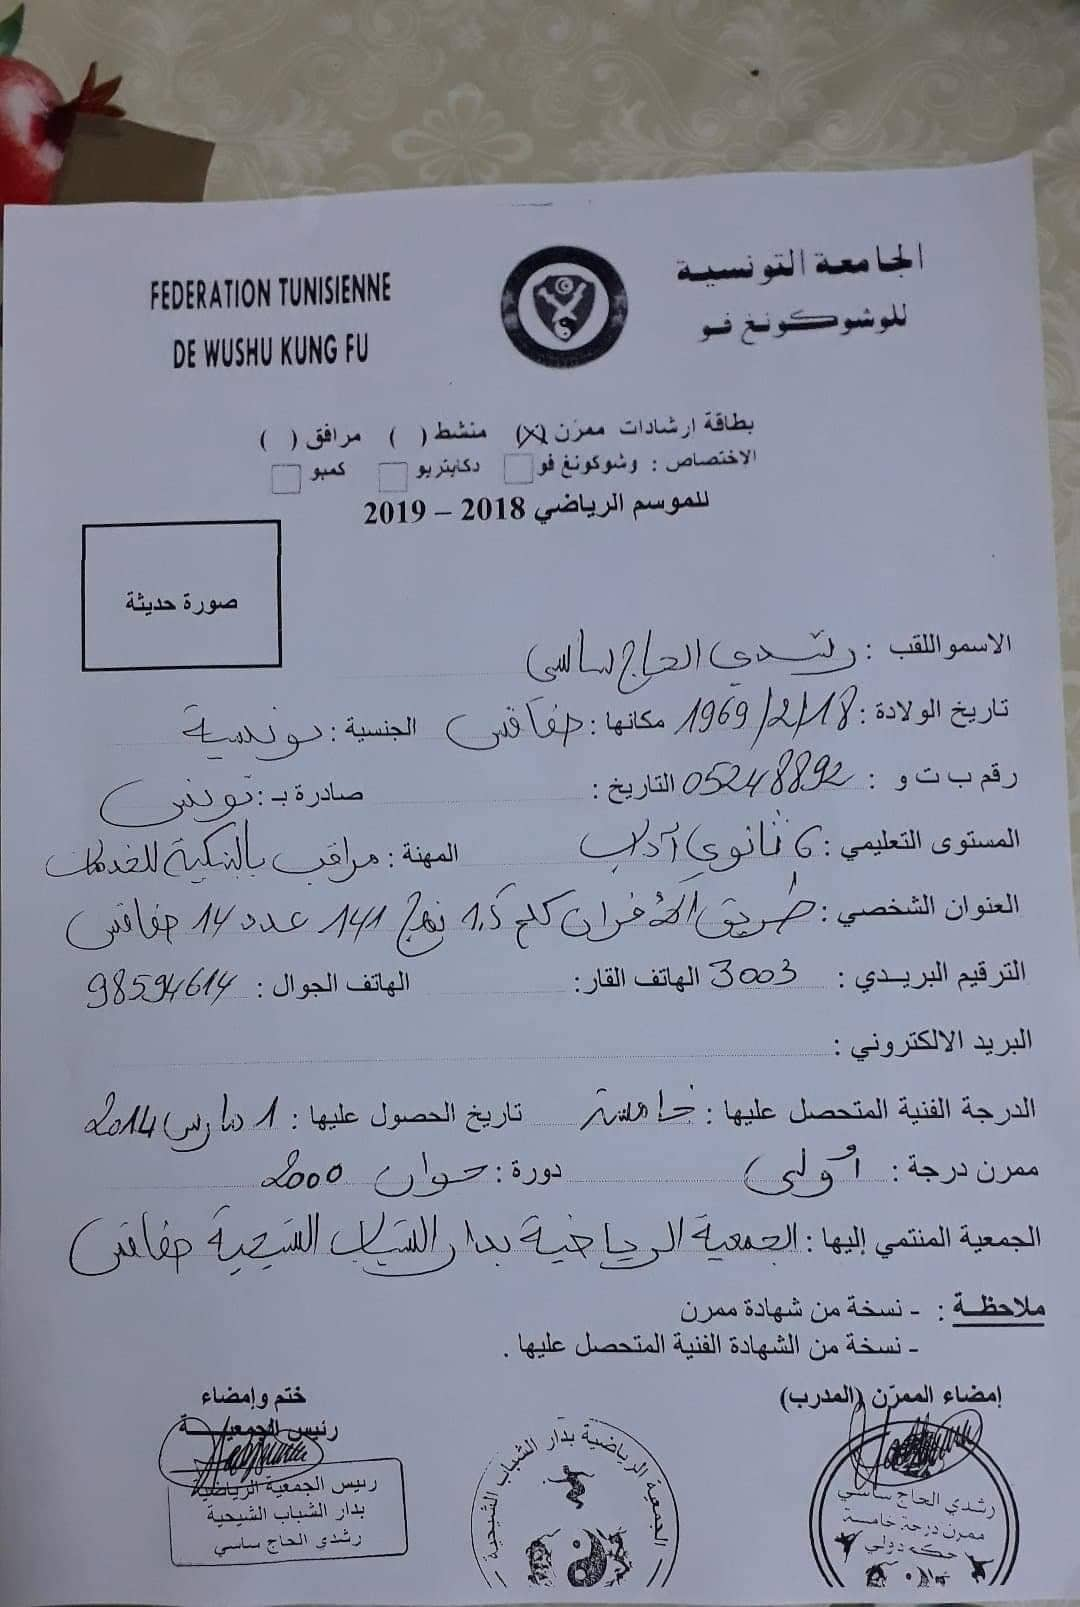 FEDERATION TUNISIENNE
DE WUSHU KUNG FU
الجامعة التونسية
للوشوكونغ فو
بطاقة ارشادات ممرّن (X) منشط ( ) مرافق ( )
الاختصاص : وشوكونغ فو دكايتريو كمبو
للموسم الرياضي 2018 – 2019
صورة حديثة
الاسمو اللقب : رشدي الحاج ساسي
تاريخ الولادة : 1969/2/18 مكانها : صفاقس الجنسية : تونسية
رقم ب ت و : 05248892 التاريخ : صادرة بـ : تونس
المستوى التعليمي : 6 ثانوي آداب المهنة : مراقب للخدمات
العنوان الشخصي : طريق الأفران كلم 1.5 نهج 141 عدد 14 صفاقس
الترقيم البريدي : 3003 الهاتف القار: الهاتف الجوال : 98594614
البريد الالكتروني :
الدرجة الفنية المتحصل عليها : خامسة تاريخ الحصول عليها : 1 مارس 2014
ممرن درجة : أولى دورة : جوان 2000
الجمعية المنتمي إليها : الجمعية الرياضية بدار الشباب الشيحية صفاقس
ملاحظة : - نسخة من شهادة ممرن
- نسخة من الشهادة الفنية المتحصل عليها .
إمضاء الممرّن (المدرب)
ختم وإمضاء
رئيس الجمعيـــة
رئيس الجمعية الرياضية
بدار الشباب الشيحية
رشدي الحاج ساسي
الجمعية الرياضية بدار الشباب الشيحية
رشدي الحاج ساسي
ممرن درجة خامسة
حكم دولي